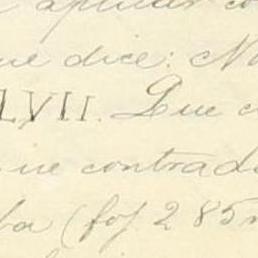 aplicar co
ue dice: N
LVII. Que c
ue contrad
ba (foj 285